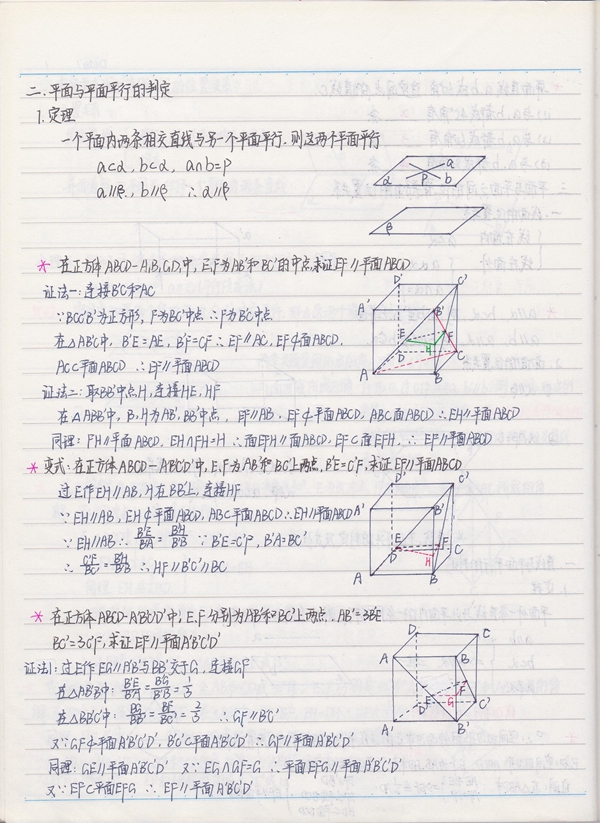 二.平面与平面平行的判定
1.定理
一个平面内两条相交直线与另一个平面平行,则这两个平面平行
a⊂α, b⊂α, a∩b=P
a∥β, b∥β ∴α∥β
α P a b
β
* 在正方体ABCD-A₁B₁C₁D₁中,E,F为AB'和BC'的中点,求证EF∥平面ABCD
证法一:连接B'C和AC
∵BCC'B'为正方形,F为BC'中点 ∴F为B'C中点
在△AB'C中, B'E=AE, B'F=CF ∴EF∥AC, EF⊄平面ABCD,
AC⊂平面ABCD ∴EF∥平面ABCD
D' C' A' B' E F H D C A B
证法二:取BB'中点H,连接HE,HF
在△ABB'中, E,H为AB',BB'中点, EF∥AB, EF⊄平面ABCD, AB⊂面ABCD ∴EH∥平面ABCD
同理:FH∥平面ABCD, EH∩FH=H ∴面EFH∥面ABCD, EF⊂面EFH, ∴EF∥平面ABCD
* 变式:在正方体ABCD-A'B'C'D'中,E,F为AB'和BC'上两点,B'E=C'F,求证EF∥平面ABCD
过E作EH∥AB,H在BB'上,连接HF
∵EH∥AB, EH⊄平面ABCD, AB⊂平面ABCD ∴EH∥平面ABCD
∵EH∥AB ∴B'E/B'A=B'H/B'B ∵B'E=C'F, B'A=BC'
∴C'F/BC'=B'H/B'B ∴HF∥B'C'∥BC
D' C' A' B' E F D C H A B
* 在正方体ABCD-A'B'C'D'中,E,F分别为AB'和BC'上两点,AB'=3B'E
BC'=3C'F,求证EF∥平面A'B'C'D'
证法1:过E作EG∥A'B'与BB'交于G,连接GF
在△AB'B中: B'E/B'A=B'G/B'B=1/3
在△BB'C'中: BG/BB'=BF/BC'=2/3 ∴GF∥B'C'
又∵GF⊄平面A'B'C'D', B'C'⊂平面A'B'C'D' ∴GF∥平面A'B'C'D'
同理:GE∥平面A'B'C'D' 又∵EG∩GF=G ∴平面EFG∥平面A'B'C'D'
又∵EF⊂平面EFG ∴EF∥平面A'B'C'D'
D C A B F E G D' C' A' B'